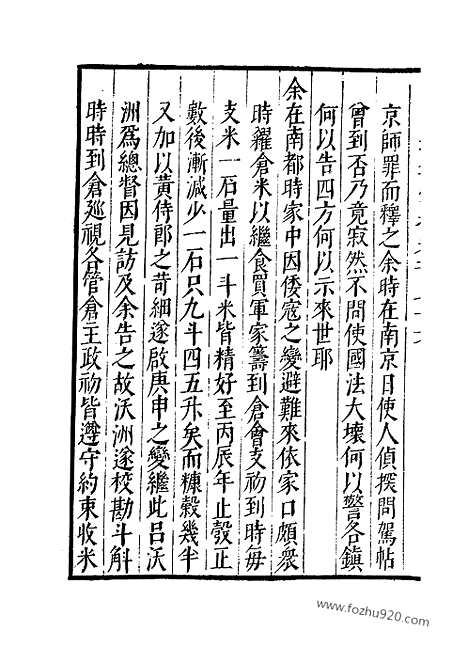 京師罪而釋之余時在南京日使人偵探問駕帖
曾到否乃竟寂然不問使國法大壞何以警各鎮
何以告四方何以示來世耶
余在南都時家中因倭寇之變避難來依家口頗衆
時糴倉米以繼食買軍家籌到倉會支初到時每
支米一石量出一斗米皆精好至丙辰年止彀正
數後漸減少一石只九斗四五升矣而糠穀幾半
又加以黃侍郎之苛細遂啟庚申之變繼此呂沃
洲爲總督因見訪及余告之故沃洲遂校勘斗斛
時時到倉廵視各管倉主政初皆遵守約束收米
www.fozhu920.com